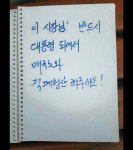 이 시장님! 반드시
대통령 되어서
매국노와
적폐청산 해주세요!